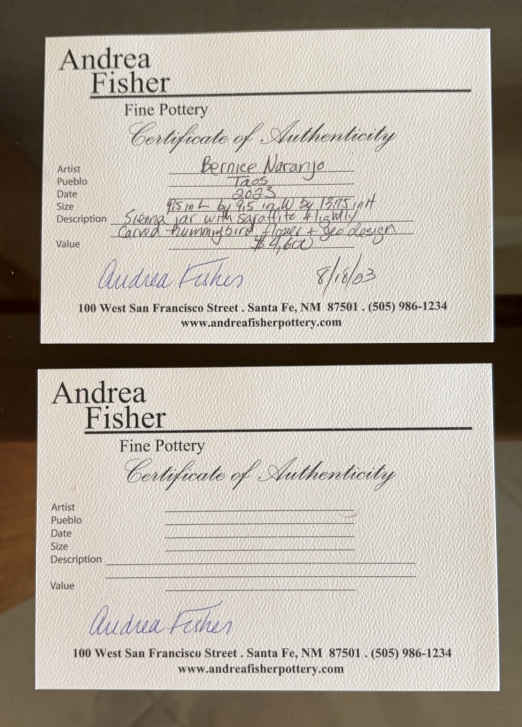 Andrea
Fisher
Fine Pottery
Certificate of Authenticity
Artist Bernice Naranjo
Pueblo Taos
Date 2023
Size 9.5 in L by 9.5 in W by 13.75 in H
Description Sienna jar with sgraffito & lightly
carved hummingbird, flower + geo design
Value $4,600
Andrea Fisher 8/18/03
100 West San Francisco Street . Santa Fe, NM 87501 . (505) 986-1234
www.andreafisherpottery.com
Andrea
Fisher
Fine Pottery
Certificate of Authenticity
Artist
Pueblo
Date
Size
Description
Value
Andrea Fisher
100 West San Francisco Street . Santa Fe, NM 87501 . (505) 986-1234
www.andreafisherpottery.com